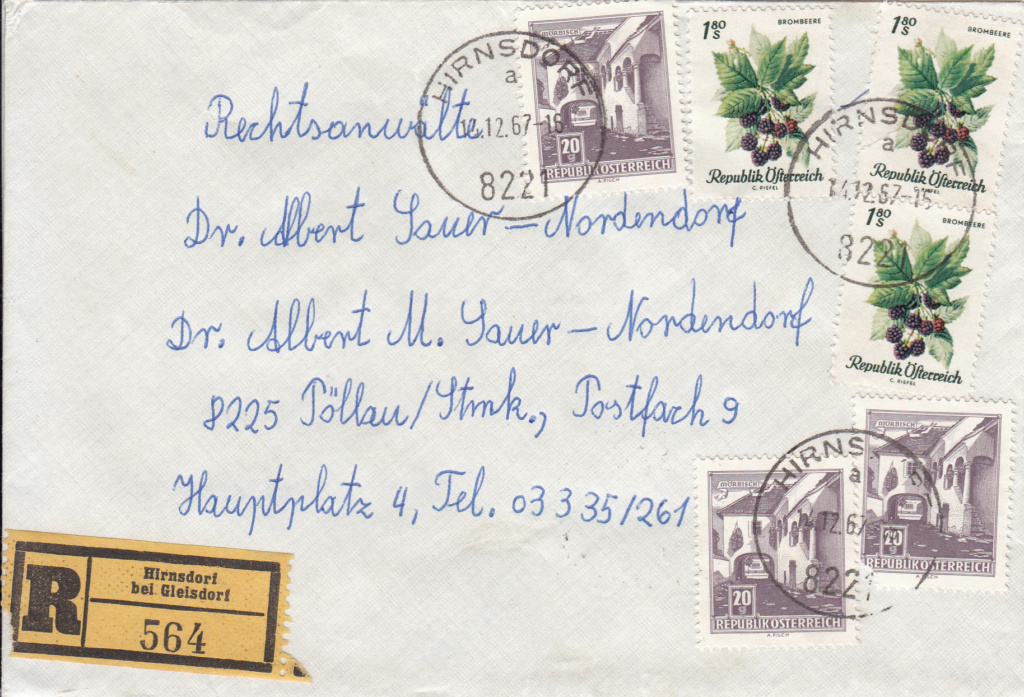 MÖRBISCH
20
g
REPUBLIK ÖSTERREICH
A. PILCH
1 80
S
BROMBEERE
Republik Österreich
C. RIEFEL
1 80
S
BROMBEERE
Republik Österreich
C. RIEFEL
HIRNSDORF
a
14.12.67-16
8221
HIRNSDORF
a
14.12.67-16
8221
1 80
S
BROMBEERE
Republik Österreich
C. RIEFEL
Rechtsanwälte
Dr. Albert Sauer-Nordendorf
Dr. Albert M. Sauer-Nordendorf
8225 Pöllau/Stmk., Postfach 9
Hauptplatz 4, Tel. 03335/261
MÖRBISCH
20
g
REPUBLIK ÖSTERREICH
A. PILCH
MÖRBISCH
20
g
REPUBLIK ÖSTERREICH
A. PILCH
HIRNS
a
14.12.67
8221
R
Hirnsdorf
bei Gleisdorf
564